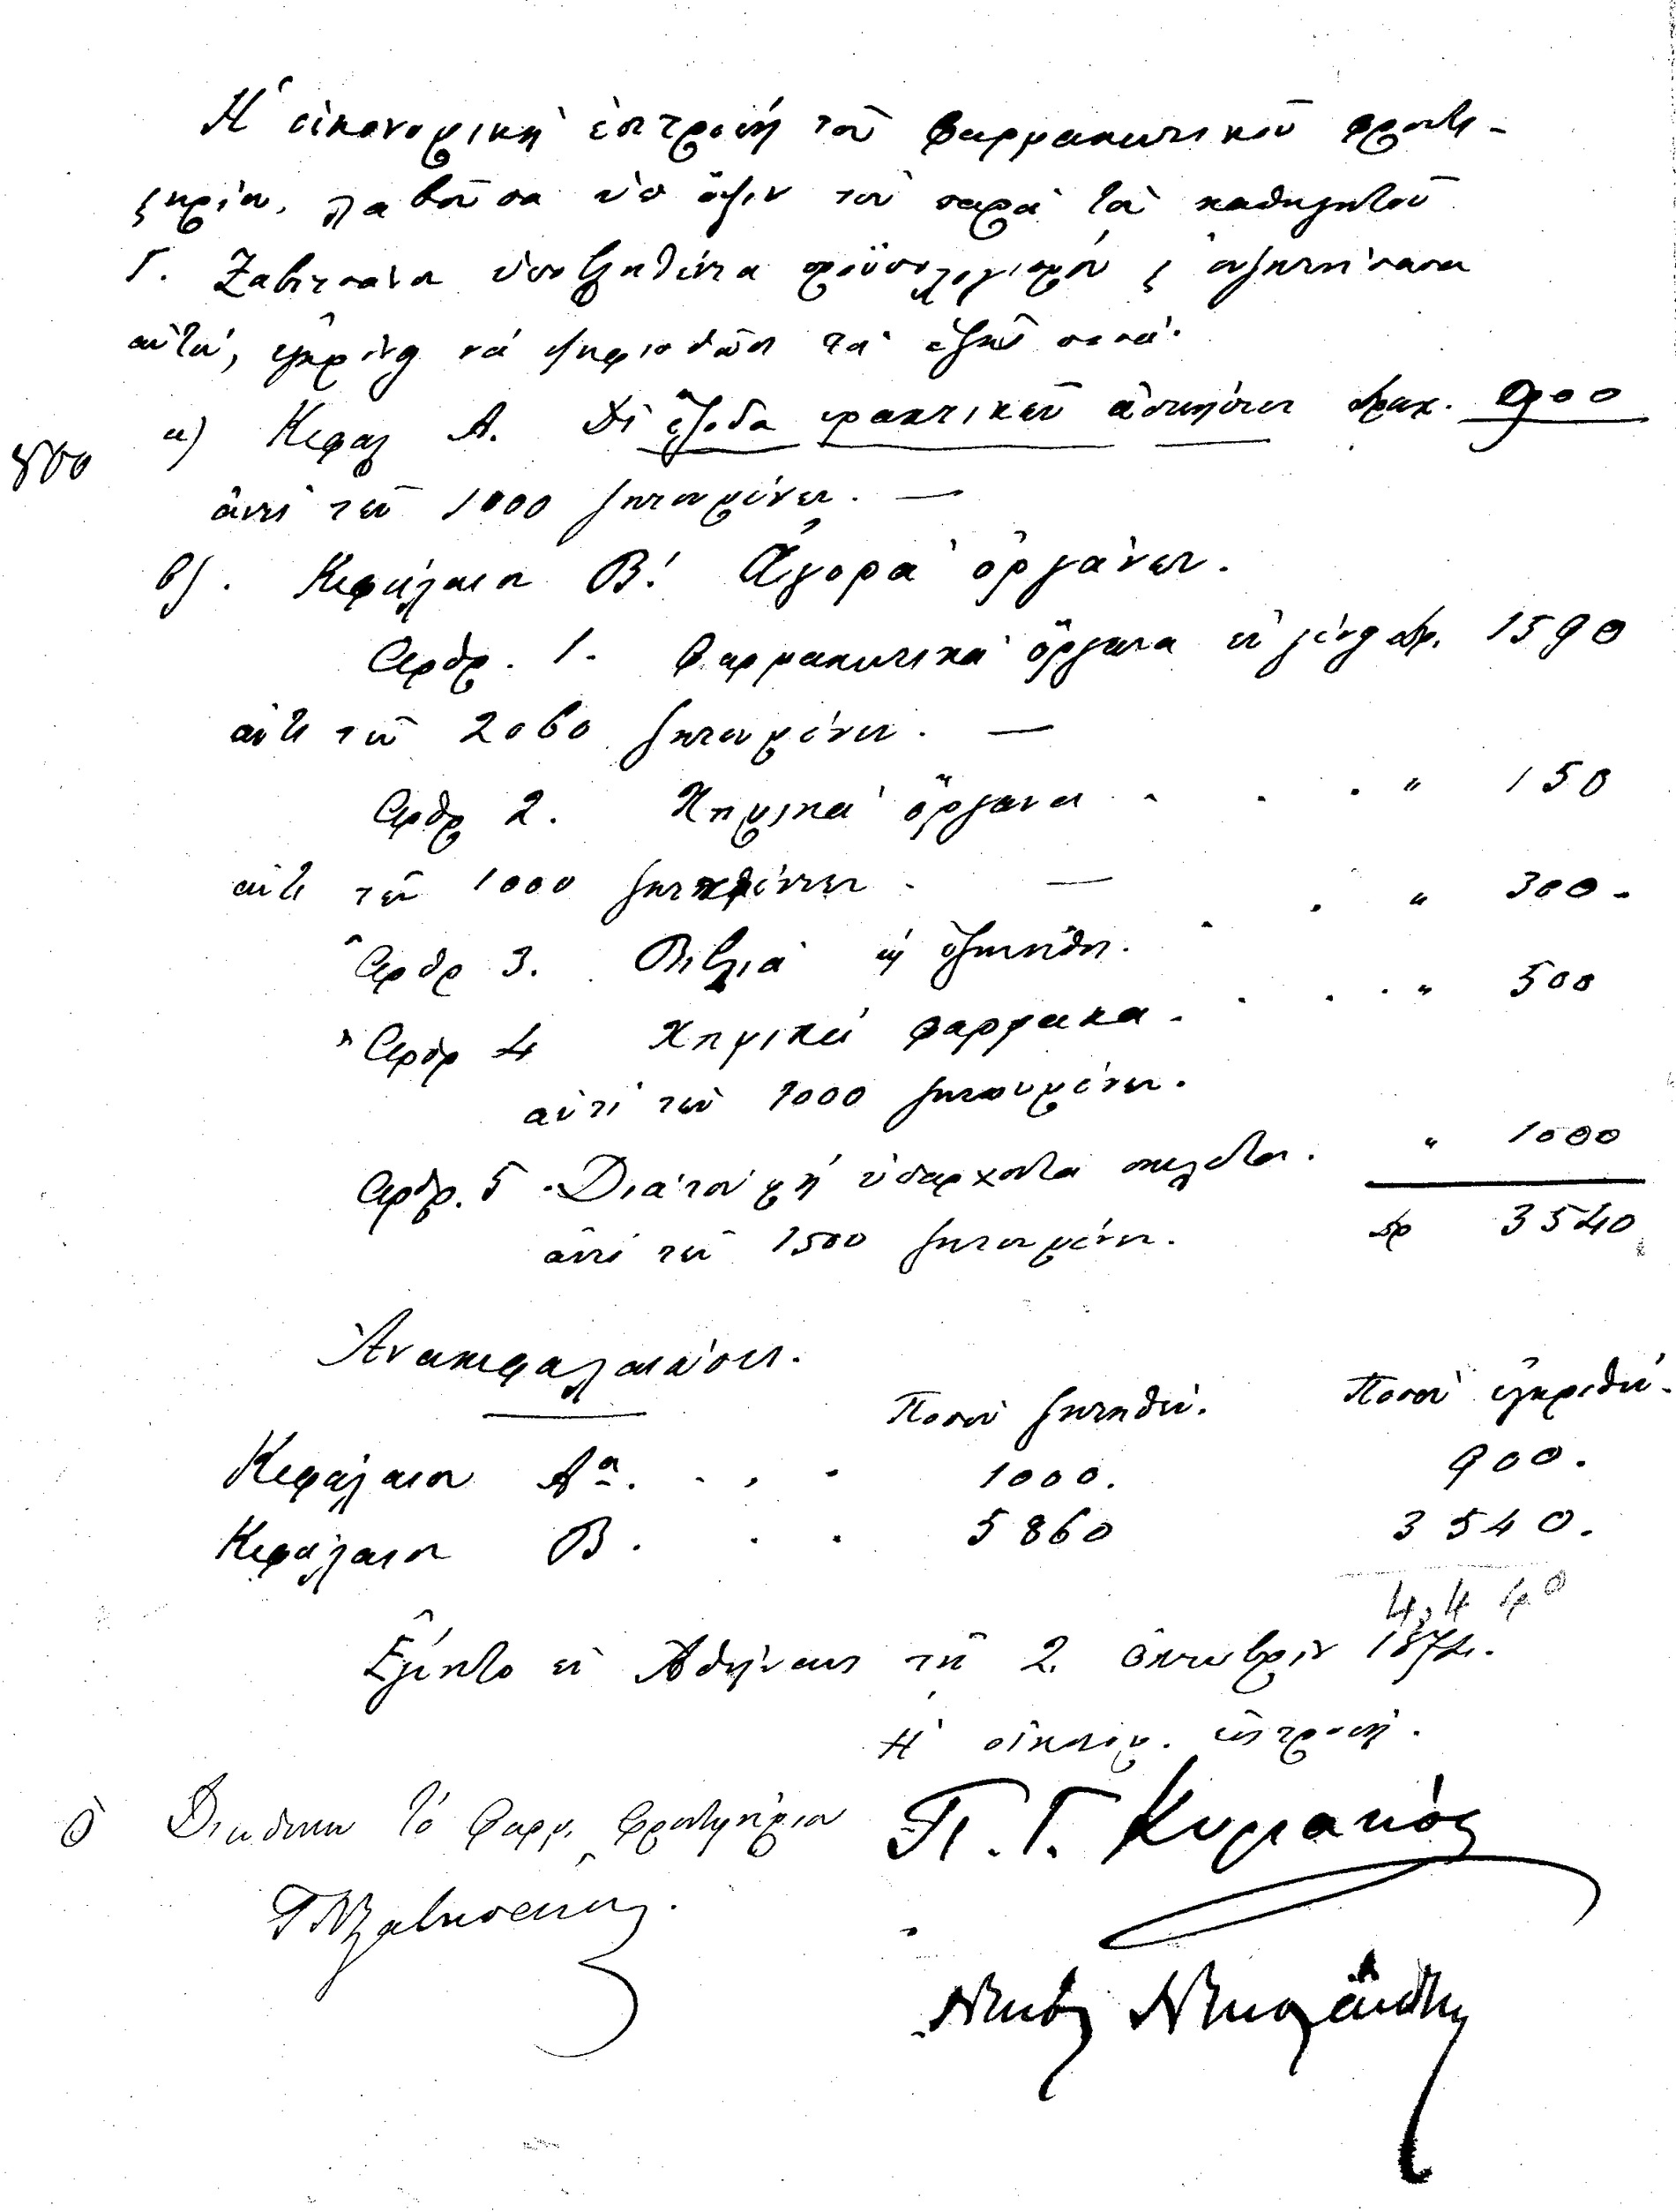 Ἡ οἰκονομικὴ ἐπιτροπὴ τοῦ Φαρμακευτικοῦ φροντι-
στηρίου, λαβοῦσα ὑπ' ὄψιν τὸν παρὰ τοῦ καθηγητοῦ
Γ. Ζαβιτσάνου ὑποβληθέντα προϋπολογισμὸν καὶ συζητήσασα
αὐτόν, ἐγκρίνει νὰ ψηφισθῶσι τὰ ἑξῆς ποσά.
800
α) Κεφαλ Α. Δι' ἔξοδα πρακτικῶν ἀσκήσεων δραχ. 900
ἀντὶ τῶν 1000 ζητουμένων. —
β). Κεφάλαιον Β! Ἀγορὰ ὀργάνων.
Ἄρθρ. 1. Φαρμακευτικὰ ὄργανα ἐν γένει δρ. 1590
ἀντὶ τῶν 2060 ζητουμένων. —
Ἄρθρ 2. Χημικὰ ὄργανα . . . " 150
ἀντὶ τῶν 1000 . —
Ἄρθρ 3. Βιβλία . . . " 300.
Ἄρθρ 4 Χημικὰ φάρμακα . . . . " 500
ἀντὶ τῶν 1000 ζητουμένων.
Ἄρθρ. 5 . Διὰ τὸν μὴ ὑπάρχοντα . " 1000
ἀντὶ τῶν 1500 ζητουμένων. δρ 3540
Ἀνακεφαλαίωσις.
Ποσὸν ζητηθέν. Ποσὸν ἐγκριθέν.
Κεφάλαιον Αον. . , . 1000. 900.
Κεφάλαιον Β. . . 5860 3540.
4,440
Ἐγένετο ἐν Ἀθήναις τῇ 2 Ὀκτωβρίου 1874.
Ἡ οἰκονομ. ἐπιτροπή.
Ὁ Διευθύνων τὸ Φαρμ. Φροντιστήριον
Π. Γ. Κυριακός
Γ Ν Ζαβιτσάνος.